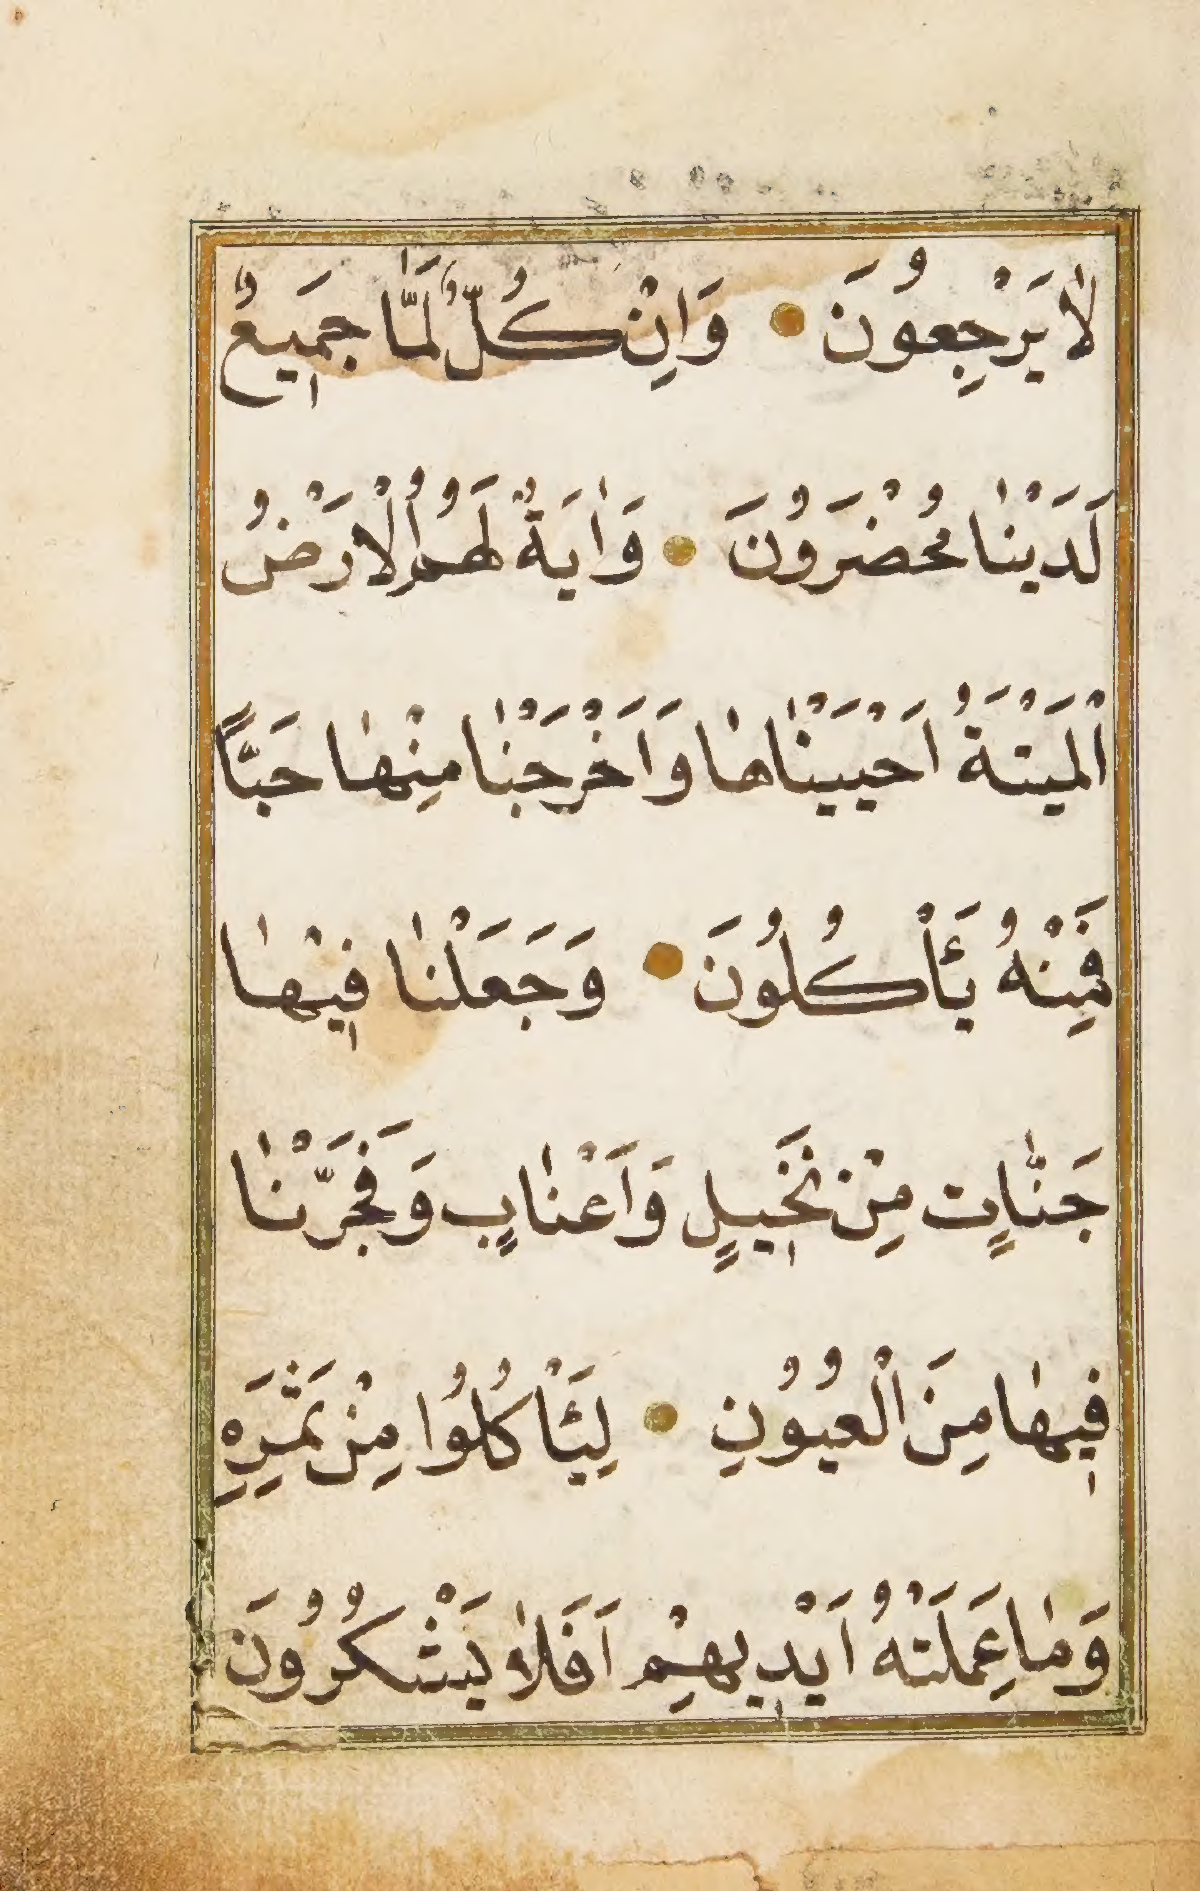 لَا يَرْجِعُونَ وَاِنْ كُلٌّ لَمَّا جَمِيعٌ
لَدَيْنَا مُحْضَرُونَ وَاٰيَةٌ لَهُمُ الْاَرْضُ
الْمَيْتَةُ اَحْيَيْنَاهَا وَاَخْرَجْنَا مِنْهَا حَبًّا
فَمِنْهُ يَأْكُلُونَ وَجَعَلْنَا فِيهَا
جَنَّاتٍ مِنْ نَخِيلٍ وَاَعْنَابٍ وَفَجَّرْنَا
فِيهَا مِنَ الْعُيُونِ لِيَأْكُلُوا مِنْ ثَمَرِهِ
وَمَا عَمِلَتْهُ اَيْدِيهِمْ اَفَلَا يَشْكُرُونَ